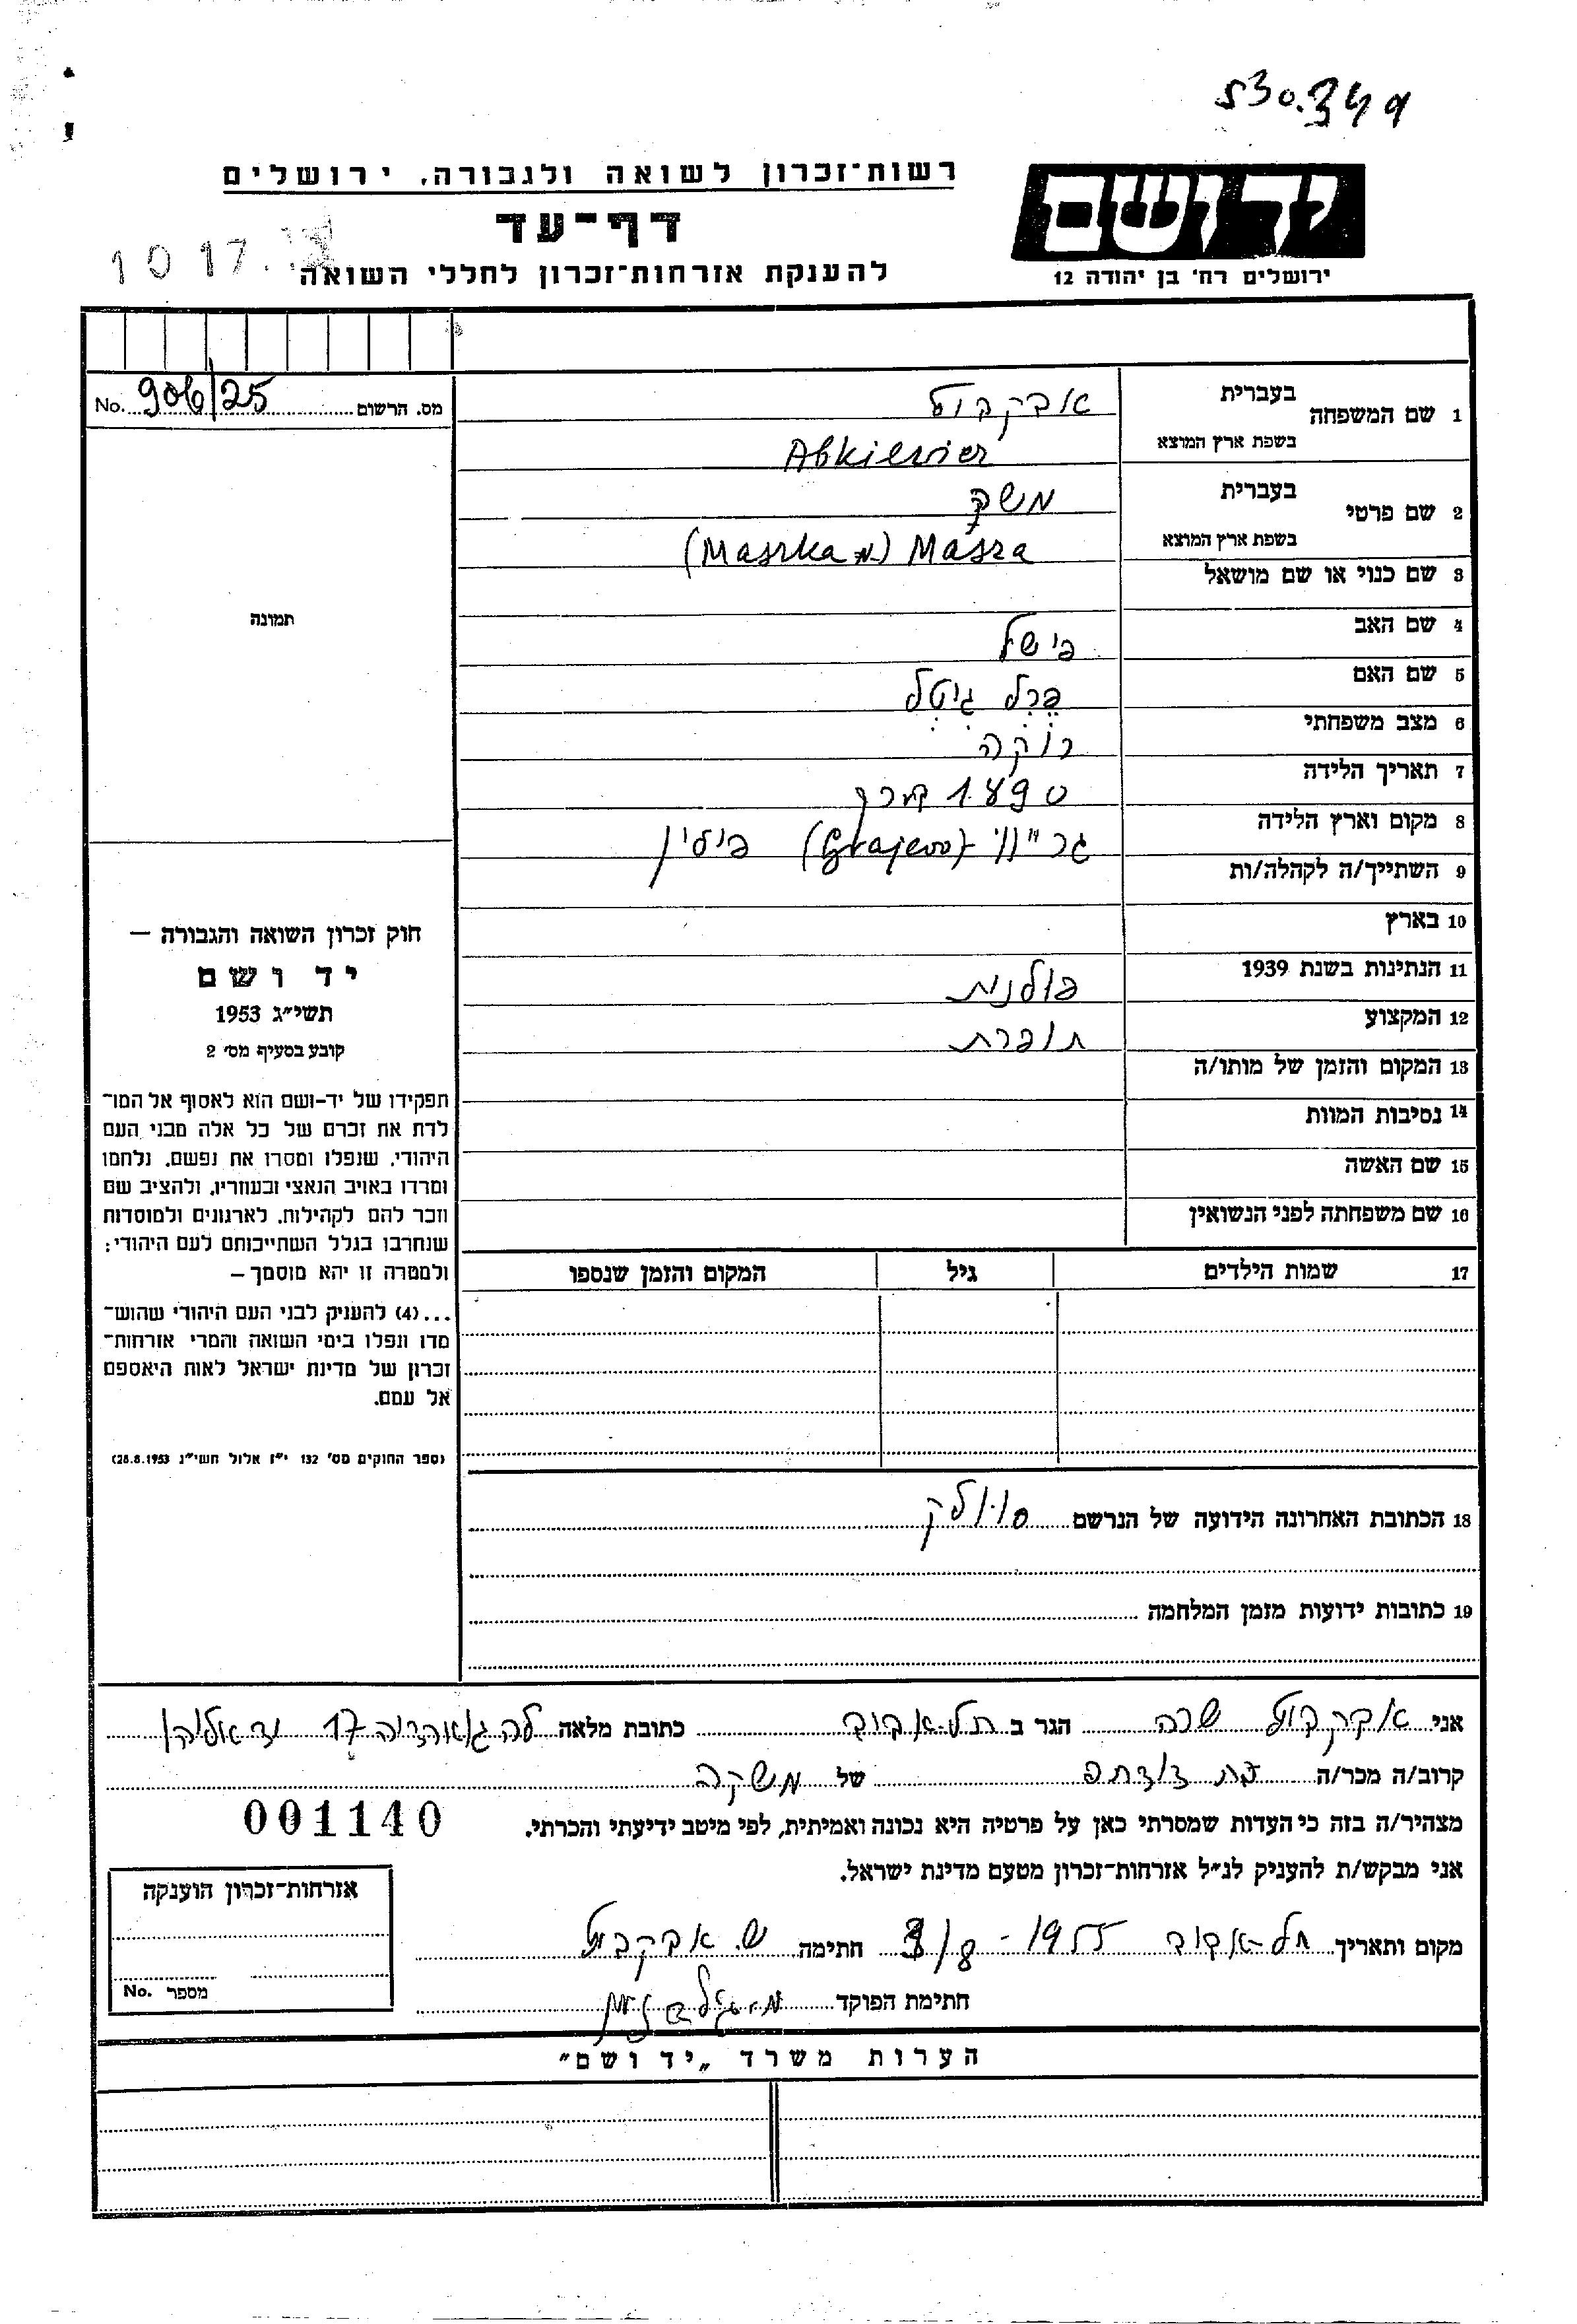 530.349
רשות־זכרון לשואה ולגבורה, ירושלים
ידושם
דף־עד
10 17
להענקת אזרחות־זכרון לחללי השואה
ירושלים רח' בן יהודה 12
מס. הרשום 906/25 No.
1 שם המשפחה בעברית
בשפת ארץ המוצא Abkiewier
2 שם פרטי בעברית משקה
בשפת ארץ המוצא Masza (Maszka)
3 שם כנוי או שם מושאל
תמונה
4 שם האב פישל
5 שם האם פרל גיטל
6 מצב משפחתי רוקה
7 תאריך הלידה 1890 בערך
8 מקום וארץ הלידה (Grajewo) פולין
9 השתייך/ה לקהלה/ות
10 בארץ
11 הנתינות בשנת 1939 פולנית
12 המקצוע תופרת
13 המקום והזמן של מותו/ה
14 נסיבות המוות
15 שם האשה
16 שם משפחתה לפני הנשואין
17 שמות הילדים גיל המקום והזמן שנספו
חוק זכרון השואה והגבורה —
יד ושם
תשי״ג 1953
קובע בסעיף מס' 2
תפקידו של יד-ושם הוא לאסוף אל המו־
לדת את זכרם של כל אלה מבני העם
היהודי, שנפלו ומסרו את נפשם, נלחמו
ומרדו באויב הנאצי ובעוזריו, ולהציב שם
וזכר להם לקהילות, לארגונים ולמוסדות
שנחרבו בגלל השתייכותם לעם היהודי;
ולמטרה זו יהא מוסמך —
...(4) להעניק לבני העם היהודי שהוש־
מדו ונפלו בימי השואה והמרי אזרחות־
זכרון של מדינת ישראל לאות היאספם
אל עמם.
(ספר החוקים מס' 132 י״ז אלול תשי״ג 28.8.1953)
18 הכתובת האחרונה הידועה של הנרשם סובלק
19 כתובות ידועות מזמן המלחמה
אני שרה הגר ב תל-אביב כתובת מלאה לה גוארדיה 17 יד אליהו
קרוב/ה מכר/ה בת דודתה של משקה
מצהיר/ה בזה כי העדות שמסרתי כאן על פרטיה היא נכונה ואמיתית, לפי מיטב ידיעתי והכרתי.
001140
אני מבקש/ת להעניק לנ״ל אזרחות־זכרון מטעם מדינת ישראל.
אזרחות־זכרון הוענקה
מספר No.
מקום ותאריך תל-אביב 1955 - 8/ חתימה ש.
חתימת הפוקד
הערות משרד „יד ושם״